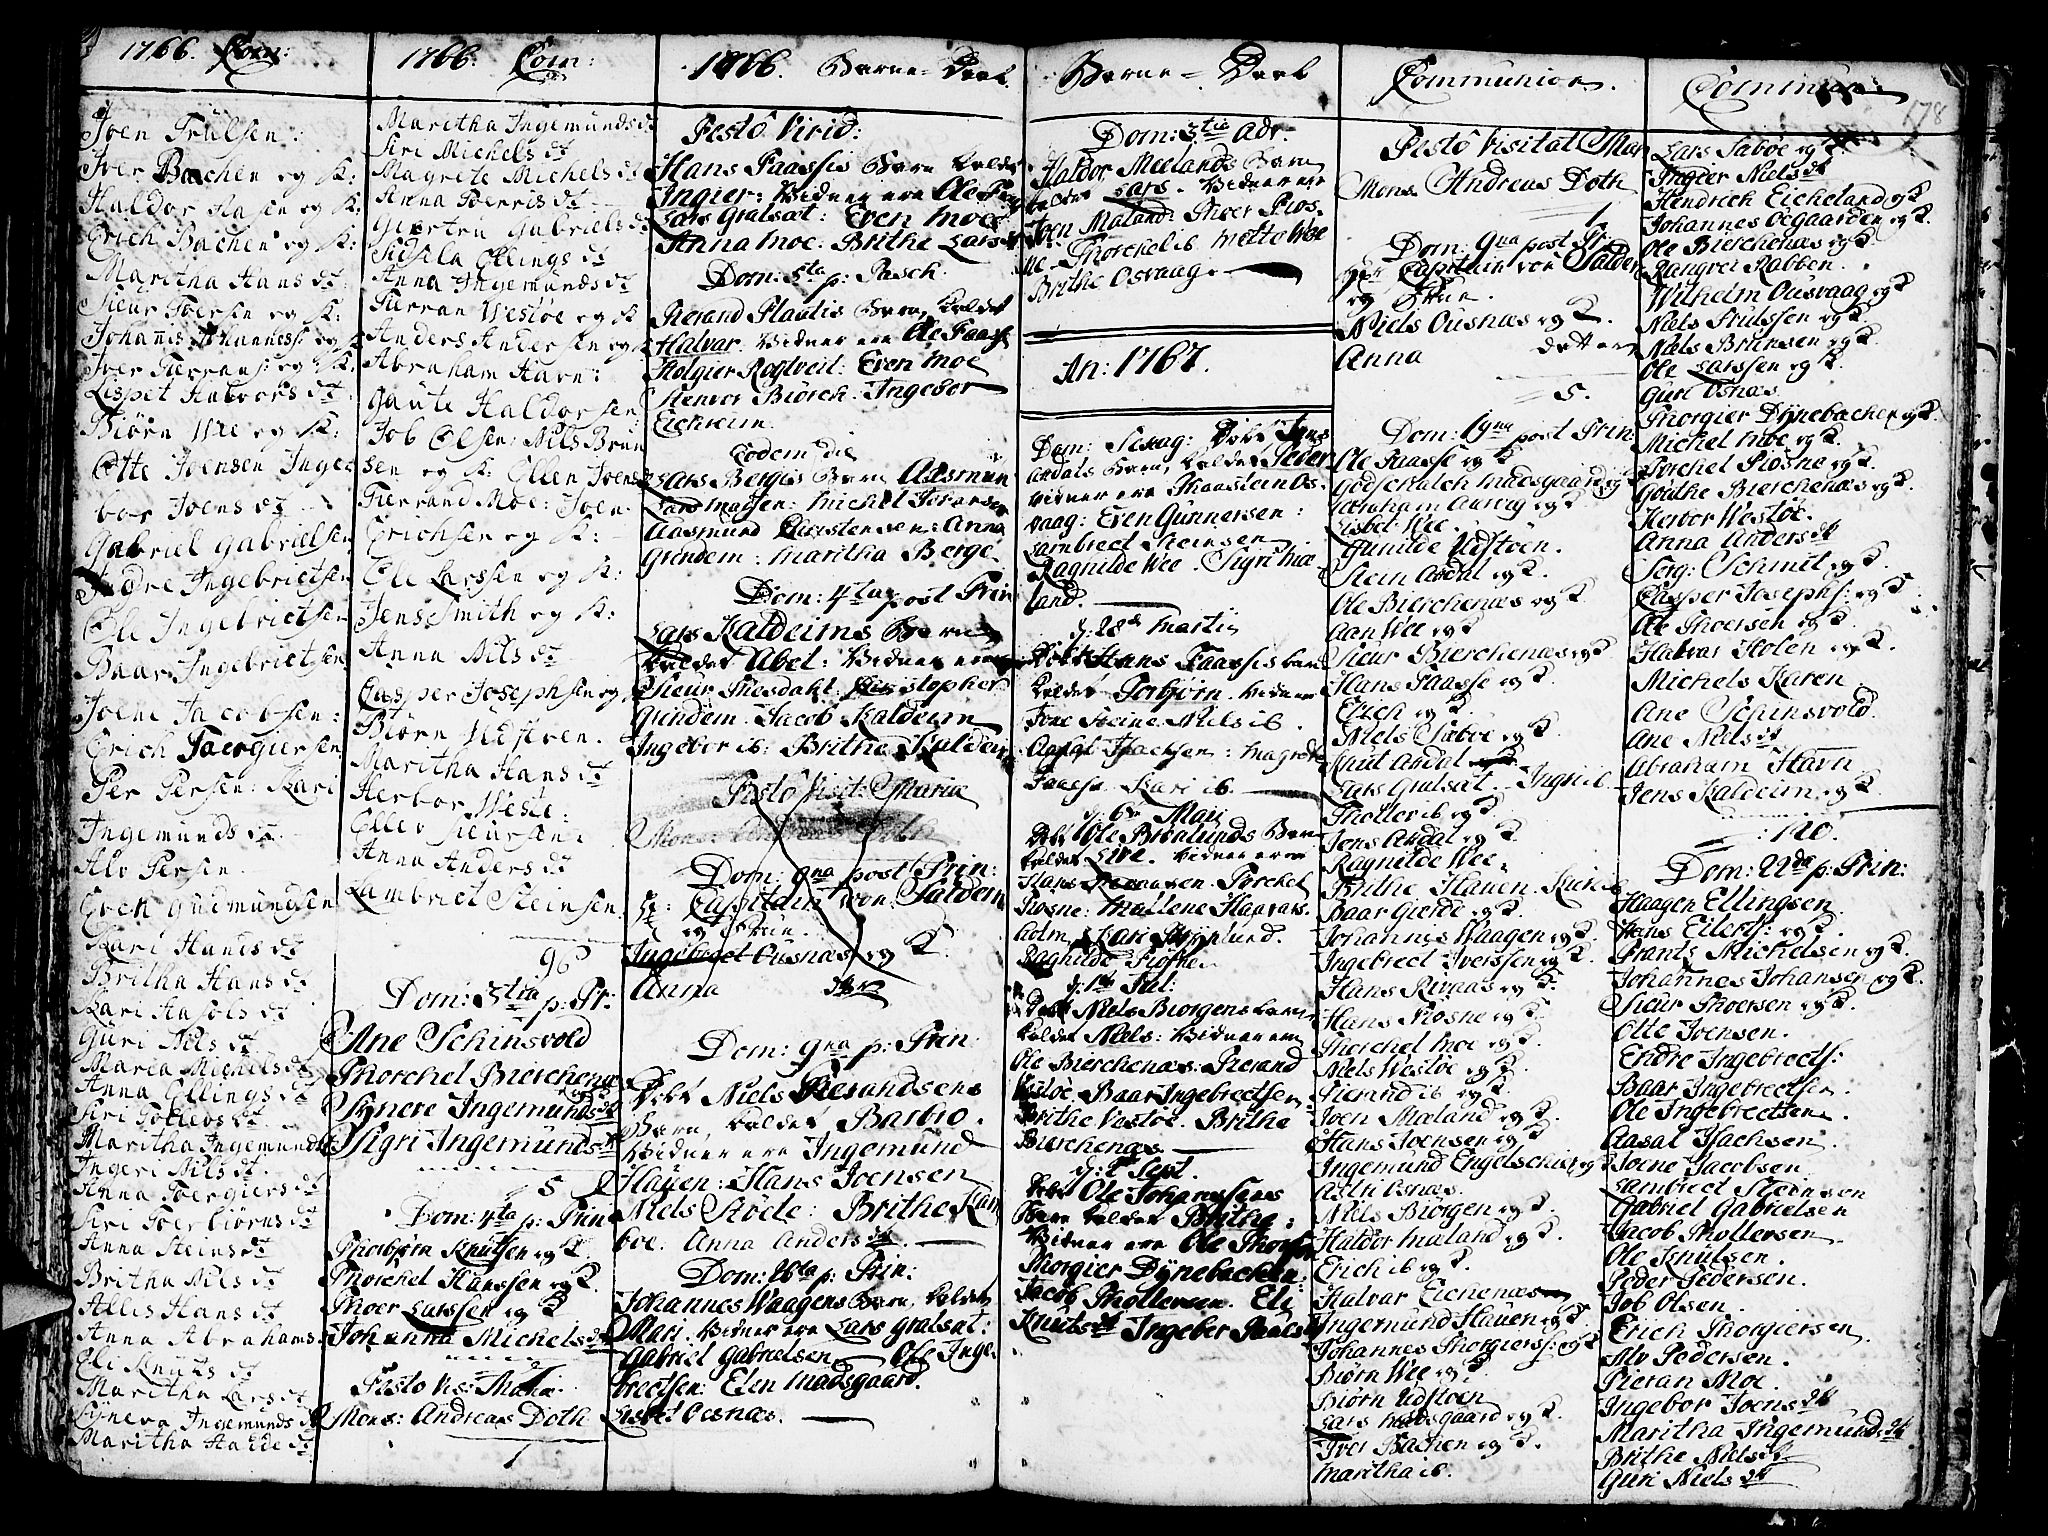 1766. Com:
Joen Trulsen:
Iver Bachen og K:
Haldor Aasen og K:
Erich Bachen og K:
Maritha Hans dt
Sieur Toersen og K:
Johannis Johannesse og K
Iver Tierrans: og K:
Lispet Halvors dt
Biørn Wee og K:
Otte Joensen Inge
bor Joens dt
Gabriel Gabrielsen
Endre Ingebrietsen
Ole Ingebrietsen
Baar Ingebrietsen
Joen Jacobsen:
Erich Toergiersen
Per Persen: Kari
Ingemunds dt
Alv Persen
Erek Gudmundsen
Kari Hanis dt
Britha Hans dt
Kari Aasols dt
Guri Nils dt
Maria Michels dt
Anna Ellings dt
Siri Tollevs dt
Maritha Ingemunds
Ingeri Nils dt
Anna Toergiers dt
Siri Toerbiørns dt
Anna Steins dt
Britha Nils dt
Allis Hans dt
Anna Abrahams
Eli Knuds dt
Maritha Lars dt
Syneva Ingemunds dt
Maritha Halde dt
1766. Com:
Maritha Ingemunds dt
Siri Michels dt
Magrete Michels dt
Anna Toerris dt
Giertru Gabriels dt
Sidsila Ellings dt
Anna Ingemunds dt
Tierran Westøe og K
Anders Andersen og K
Abraham Havn:
Gaute Haldorsen
Job Olsen: Nils Brun
sen og K: Ellen Joens
Tierrand Moe: Joen
Erichsen og K:
Ole Larssen og K:
Jens Smith og K:
Anna Nils dt
Casper Josephsen og
Biørn Udstven.
Maritha Hans dt
Herbor Weste:
Eller Sieursen:
Anna Anders dt
Lambriet Steinsen
96
Dom: 3tia p: Tr:
Ane Schinsvold
Thorchel Bierchenæs
Synere Ingemunds dt
Sigri Ingemunds dt
5
Dom: 4ta p: Trin
Thorbiørn Knutsen og K.
Thorchel Hanssen og K.
Thoer Larssen og K
Johanna Michels dt
7
Festo Vis: Mariæ
Mons: Andreas Doth
1
1766. Børne-Daab
Festo Virid:
Hans Faassis Barn kaldet
Ingier: Vidner ere Ole Faas
Lars Gralsæt: Even Moe
Anna Moe: Brithe Lars dt
Dom: 5ta p: Pasch.
Tierand Flautis Barn, kaldet
Halvar. Vidner ere Ole Faasse
Holgier Rogtveit: Even Moe
Stenvor Biørch. Ingebor
Eichreim.
Eodem die
Lars Bergis Barn Aasmun
Lars Matsen: Michel Iversen
Aasmund Thorstensen: Anna
Grindem: Maritha Berge
Dom: 4ta post Trin
Lars Kaldeims Barn
kaldet Abel: Vidner ere
Sieur Thesdahl Christopher
Grindem. Jacob Kaldeim
Ingebor ib: Brithe Kaldeim
Festo Visit: Mariæ
Mons: Andreas Doth
Dom: 9na post Trin:
Hr: Capitain von Saldern
og Frue.
Ingebret Ousnæs og K.
Anna
Dom: 9na p: Trin:
Døbt Niels Tierandsens
Barn, kaldet Barbro.
Vidner ere Ingemund
Hauen: Hans Joensen
Niels Støde: Brithe Ram
boe. Anna Anders dt.
Dom: 26ta p: Trin:
Johannes Waagens Barn, kaldet
Mari. Vidner ere Lars Gralsæt:
Gabriel Gabrielsen Ole Inge.
brectsen: Elen Madsgaard.
Lisbet Oesnæs.
Børne-Daab
Dom: 3tia Adv.
Haldor Meelands Barn
kaldet Lars. Vidner ere
Joen Maland: Thoer Fios.
ne. Thorchel ib. Mette Wee
Brithe Osvaag.
An: 1767.
Dom: Sexag: Døbt Jens
Ardals Barn, kaldet Peder
Vidner ere Thorstein Os.
vaag: Even Gunnersen:
Lambrect Steinsen
Ragnilde Wee. Sigri Mæ
land.
d: 28de Martii
Døbt Hans Faassis barn
kaldet Torbiørn. Vidner
Tone Steine. Niels ib.
Aasal Isachsen: Magrete
Faasse. Kari ib.
d: 6te Maji
Døbt Ole Birkelunds Barn
kaldet Live. Vidner ere
Hans Torchel
Fiosne: Mallene Haavars.
holm,
Ragnilde Fiosne
d: 1te Jul:
Døbt Niels Biørgens barn
kaldet Niels: Vidner ere
Ole Bierchenæs: Tierand
Vestøe. Baar Ingebrectsen
Brithe Vestøe. Brithe
Bierchenæs.
d: Sept.
Døbt Ole Johannesens
Barn kaldet Brithe:
Vidner ere Ole Thorsen
Thorgier Dynebachen:
Jacob Thollersen. Eli
Knuts dt Ingeber Poels
Communion.
Festo Visitat Mar
Mons. Andreas Doth
1
Dom: 9na post Tr:
Hr: Capitain von Saldern
og Frue.
Niels Ousnæs og K.
Anna datter
5.
Dom: 19na post Trin:
Ole Faasse og K
Godschalch Madsgaard og K
Abraham Aarvig og K
Lisbet Wee.
Gunilde Udstoen.
Stein Ardal og K.
Ole Bierchenæs og K.
Aan Wee og K
Sieur Bierchenæs og K
Hans Faasse og K.
Erich og K.
Niels Sæbøe og K.
Knut Ardal
Lars Gralsæt. Ingri ib.
Thollev ib og K
Jens Ardal og K.
Ragnilde Wee.
Brithe Hauen.
Baar Gierde og K.
Johannis Waagen og K.
Ingebrect Iverssen og K.
Hans Revaas og K.
Hans Fiosne og K.
Thorchel Moe og K.
Niels Westøe og K.
Tierand ib og K.
Joen Mæland og K.
Hans Joensen og K
Ingemund Engelschien og K
Astri Osnæs.
Niels Biørgen og K.
Haldor Mæland og K.
Erich ib og K.
Halvar Eichenæs
Ingemund Hauen og K.
Johannes Thorgierss: og K
Biørn Wee og K
Biørn Udstoen
Lars Madsgaard og K.
Iver Bachen og K.
Maritha ib.
Commun:
178
Lars Sabøe og K
Ingier Niels dt
Hendrich Eicheland og K
Johannes Oegaarden og K.
Ole Bierchenæs og K
Rangvei Rabben.
Wilhelm Ousvaag og K
Niels Trulssen og K.
Niels Brunsen og K.
Ole Larssen og K.
Guri Osnæs.
Thorgier Dynebachen og K.
Michel Moe og K.
Torchel Fiosne og K.
Gøuthe Bierchenæs og K.
Herbor Westøe.
Anna Anders dt
Serg: Schmit og K.
Casper Josephs: og K
Ole Thoersen og K.
Halvar Holen og K.
Michels Karen.
Ane Schinsvold.
Ane Niels dt
Abraham Havn.
Jens Kaldeim og K.
120.
Dom: 22da p: Trin:
Haagen Ellingsen.
Hans Eilerts: og K.
Frants Michelsen og K
Johannes Johansen og K.
Sieur Thoersen og K.
Otte Joensen.
Endre Ingebrects:
Baar Ingebrectsen.
Ole Ingebrectsen.
Aasal Isachsen.
Joene Jacobsen
Lambrect Steinsen
Gabriel Gabrielsen
Jacob Thollersen.
Ole Knutsen.
Peder Pedersen.
Job Olsen.
Erich Thorgiersen
Alv Pedersen.
Tieran Moe.
Ingebor Joens dt
Maritha Ingemunds dt
Brithe Niels dt
Guri Niels dt